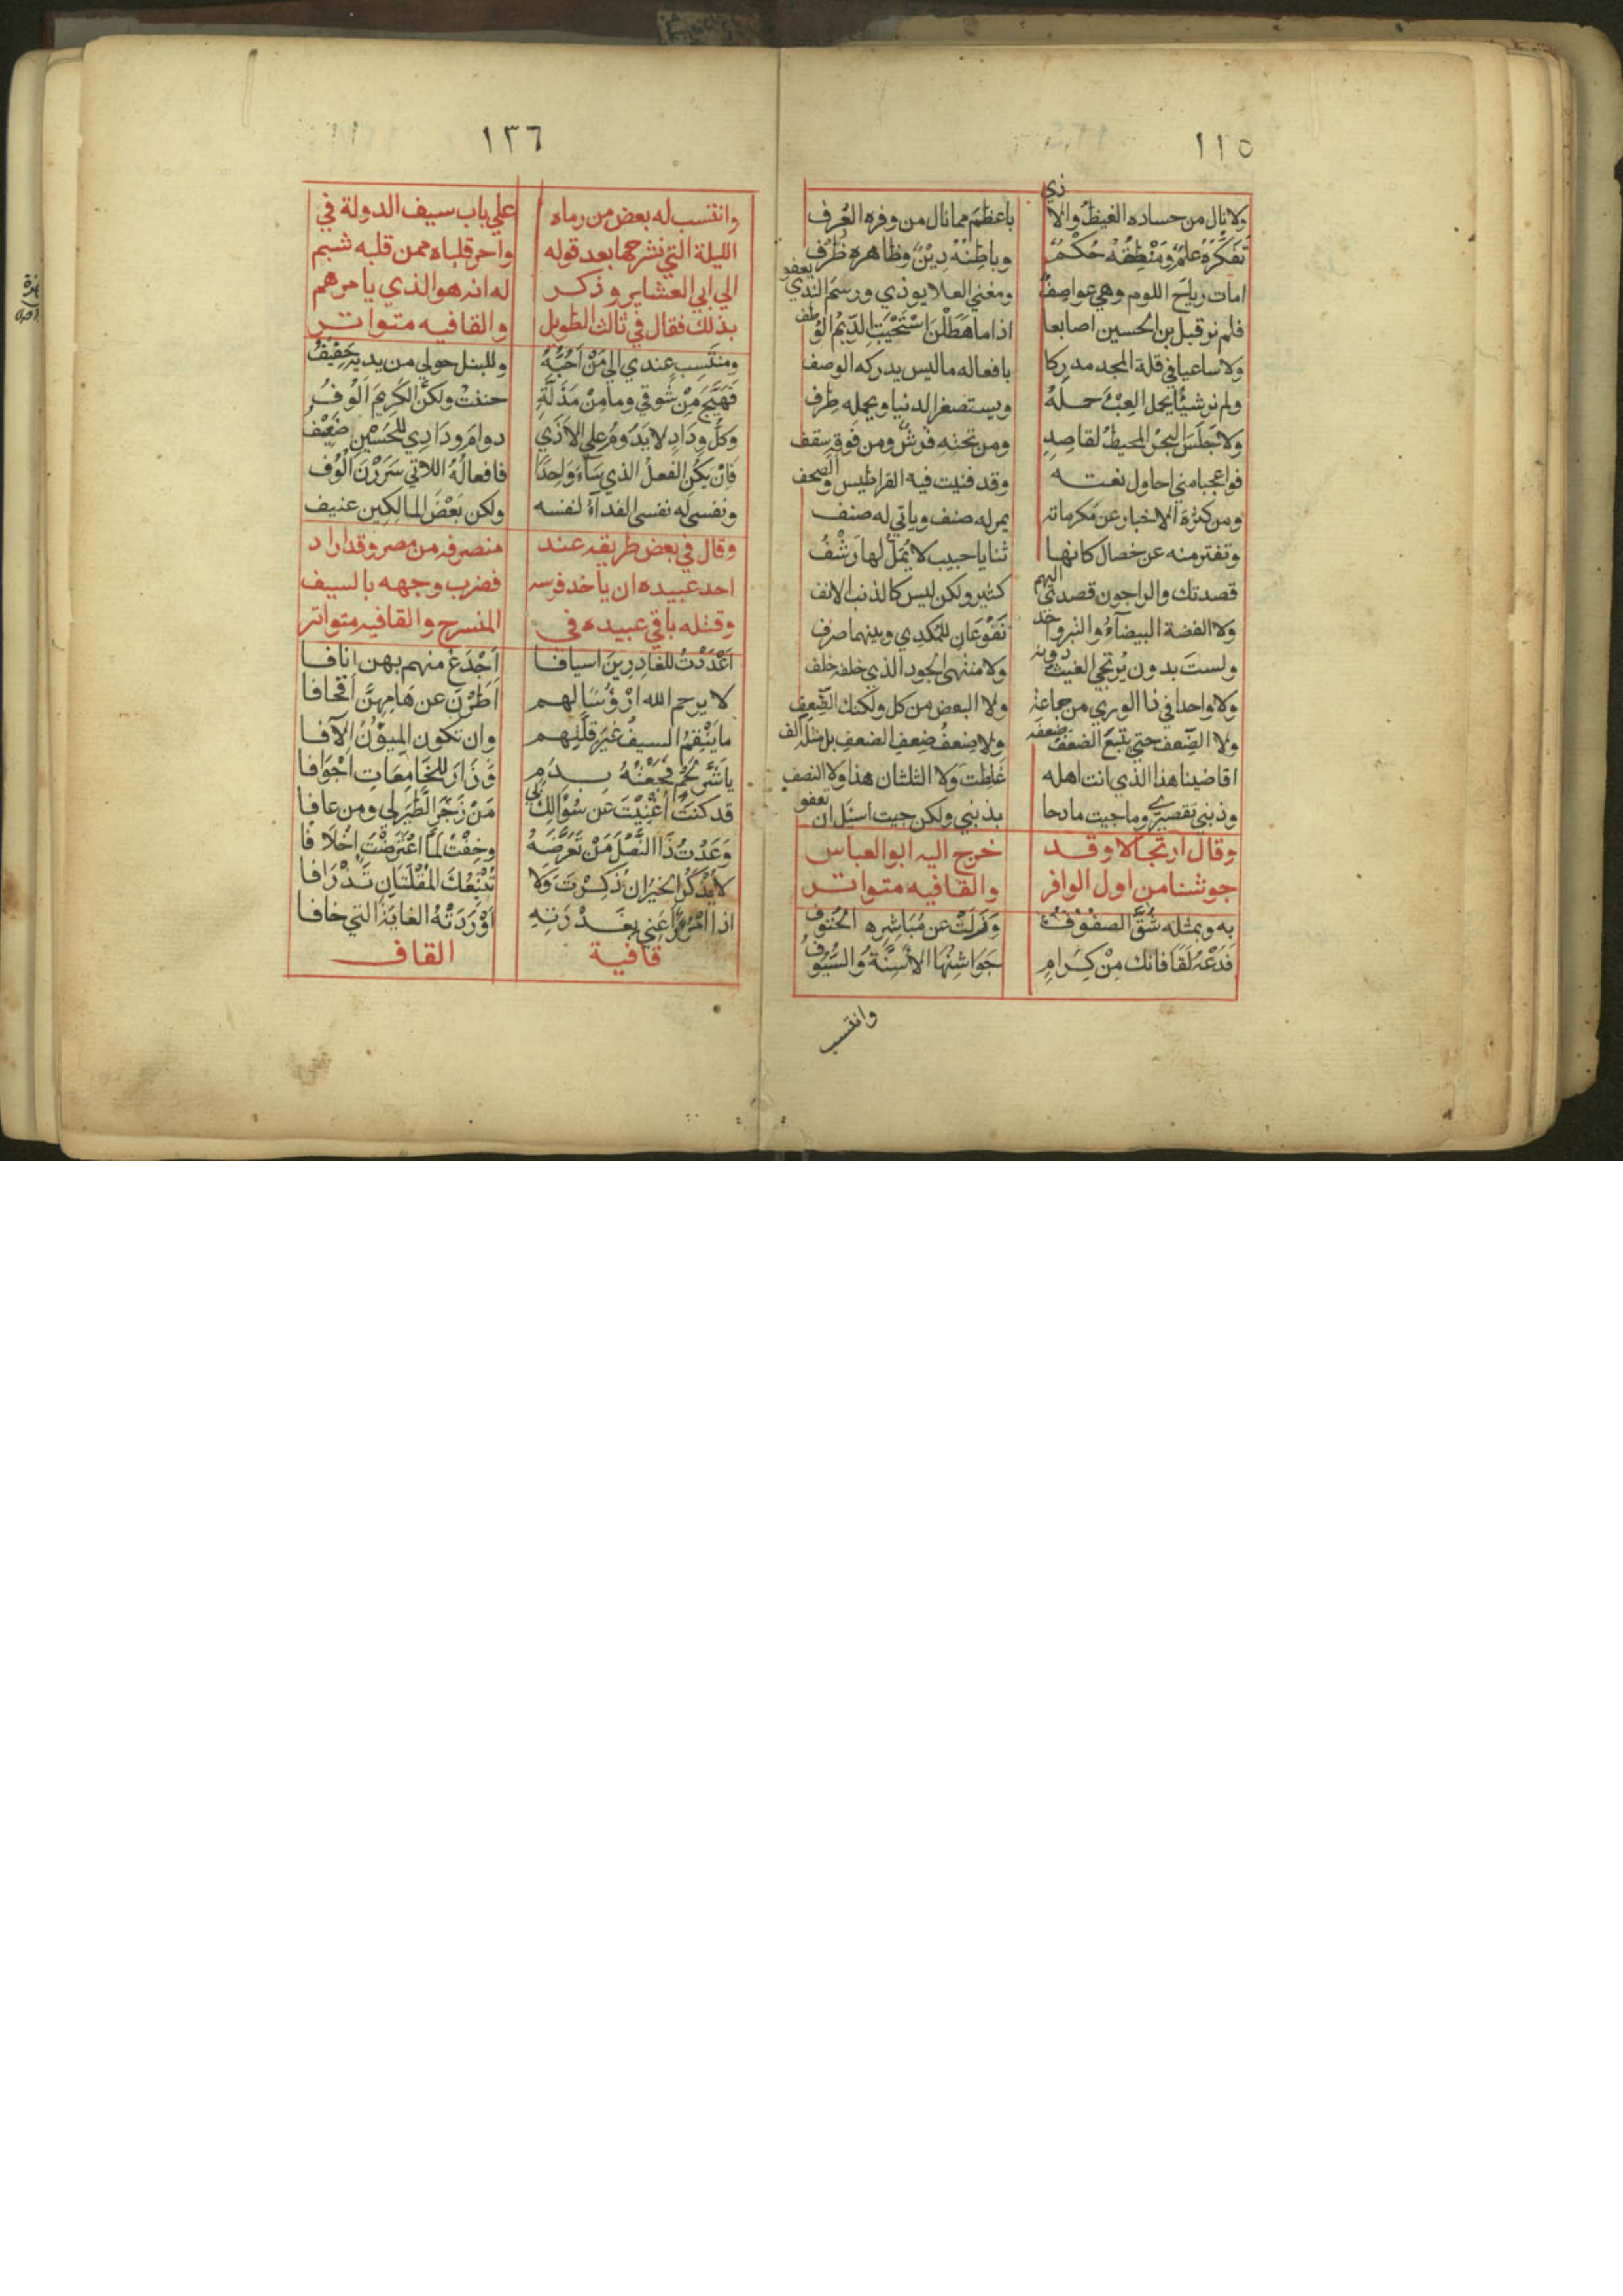 ١١٥
ولا نال من حساده الغيظ والاذي باعظم مما نال من وفره العرف
تَفَكُّرُهُ عِلْمٌ وَمَنْطِقُهُ حُكْمٌ وباطِنُهُ دِيْنٌ وظاهره ظُرْف
امات رياحَ اللوم وهي عواصفٌ ومغني العلا يوذي ورسم الندي يعفو
فلم نر قبل بن الحسين اصابعا اذا ما هَطَلْنَ اسْتَحْيَتِ الدِّيَمُ الوُطف
ولا ساعيا في قلة المجد مدركا بافعاله ما ليس يدركه الوصف
ولم نر شيئًا يحمل العِبْءَ حمله ويستصغر الدنيا ويحمله طِرف
ولا جَلَسَ البحرُ المحيطُ لقاصدٍ ومن تحته فرشٌ ومن فوقه سقف
فواعجبا مني احاول نعته وقد فنيت فيه القراطيس والصحف
ومن كثرة الاخبار عن مكرماته يمر له صنف وياتي له صنف
وتفتر منه عن خصال كانها ثنايا حبيب لا يُمَلّ لها رَشْفُ
قصدتك والراجون قصدي اليهم كثير ولكن ليس كالذنب الانف
ولا الفضة البيضآءُ والتبر واحد نَفُوْعَانِ للمُكدِي وبينهما صرف
ولستَ بدون يُرتجي الغيث دونه ولا منتهي الجود الذي خلفه خلف
ولا واحدا في ذا الوري من جماعة ولا البعض من كل ولكنك الضِّعف
ولا الضِّعف حتي يتبعَ الضعفَ ضعفه ولا ضِعفُ ضعفِ الضعفِ بل مثله الف
اقاضينا هذا الذي انت اهله غَلِطتُ ولا الثلثان هذا ولا النصف
وذنبي تقصيري وما جيت مادحا بذنبي ولكن جيت اسئل ان تعفو
وقال ارتجالا وقد خرج اليه ابو العباس
جوشنا من اول الوافر والقافيه متواتر
به وبمثله شُقَّ الصفوف وَزَلَّتْ عن مُبَاشِرِهِ الحُتوف
فَدَعْهُ لَقًا فانك مِنْ كِرَامٍ جَوَاشِنُهَا الأَسِنَّةُ وَالسُّيُوفُ
وانتسب
١٣٦
وانتسب له بعض من رماه علي باب سيف الدولة في
الليلة التي نشرحها بعد قوله واحر قلباه ممن قلبه شبم
الي ابي العشاير وذكر له انه هو الذي يامرهم
بذلك فقال في ثالث الطويل والقافيه متواتر
ومنتَسِبٍ عندي الي مَنْ اُحبُّهُ وللنبل حولي من يديه حَفِيْفُ
فَهَيَّجَ مِنْ شَوقي وما مِنْ مَذَلَّةٍ حننتُ ولكنَّ الكريمَ اَلُوْفُ
وكلُّ ودَادٍ لا يَدُومُ علي الاَذَي دوامَ ودَادِي للحُسَيْنِ ضَعِيْف
فَاِنْ يَكُنِ الفعلُ الذي سَآءَ وَاحِدًا فافعالُهُ اللاتي سَرَرْنَ اُلُوْف
ونفسي له نفسي الفدآءُ لنفسه ولكن بَعْضَ المالِكِين عنيف
وقال في بعض طريقه عند منصرفه من مصر وقد اراد
احد عبيده ان ياخد فرسه فضرب وجهه بالسيف
وقتله باقي عبيده في المنسرح والقافيه متواتر
اَعْدَدْتُ للغَادِرِينَ اسيافا اَجْدَعُ منهم بهن انافا
لا يرحم الله ارْؤُسًا لهم اَطَرْنَ عن هَامِهِنَّ اقحافا
ما يَنْقِمُ السيفُ غيرَ قلتهم وان تكون المِيؤُنُ الآفا
يا شَرَّ لحْمٍ فَجَعْتُهُ بدَمٍ وَزَارَ للخَامِعَاتِ اَجْوَافا
قد كنتَ اُغْنِيْتَ عن سُؤَالِكَ بي مَنْ زَجَرَ الطَّيْرَ لي ومن عافا
وَعَدْتُ ذَا النَّصْلَ مَنْ تَعَرَّضَهُ وخِفْتُ لَمَّا اعْتَرَضْتَ اِخْلَافَا
لا يُذْكَرُ الخيرُ ان ذُكِرْتَ وَلا تُتْبِعُكَ المُقْلَتَانِ تَذْرَافا
اذا امرُؤٌ رَاعَني بِغَدْرَتِهِ اَوْرَدْتُهُ الغايَةَ التي خافا
قافية القاف